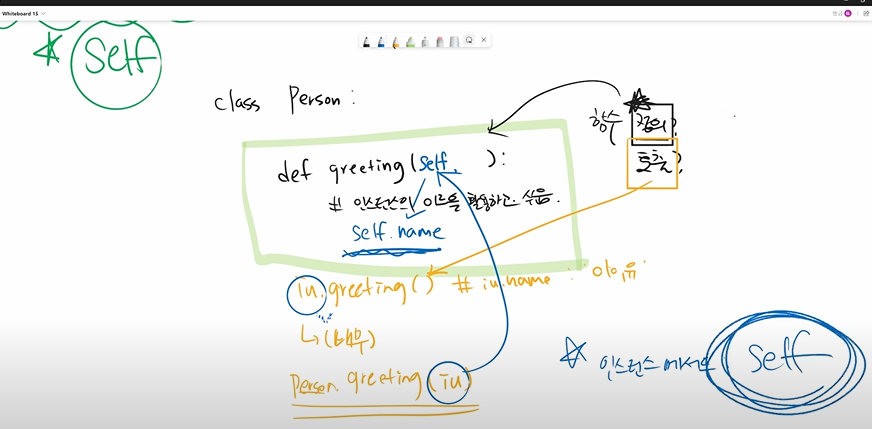 Whiteboard 15
☆ Self
class Person :
함수 정의,
호출,
def greeting(self, ):
# 인스턴스의 이름을 활용하고 싶음.
self.name
iu.greeting() # iu.name : 아이유
↳ (내부)
Person.greeting(iu)
☆ 인스턴스 메서드 self